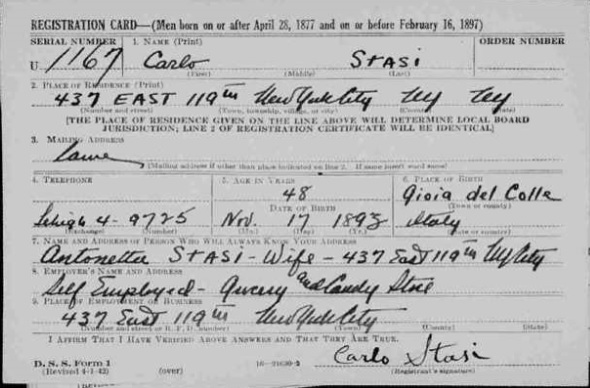 REGISTRATION CARD—(Men born on or after April 28, 1877 and on or before February 16, 1897)
SERIAL NUMBER 1. NAME (Print) ORDER NUMBER
U 1167 Carlo STASI
(First) (Middle) (Last)
2. PLACE OF RESIDENCE (Print)
437 EAST 119th New York City NY NY
(Number and street) (Town, township, village, or city) (County) (State)
[THE PLACE OF RESIDENCE GIVEN ON THE LINE ABOVE WILL DETERMINE LOCAL BOARD
JURISDICTION; LINE 2 OF REGISTRATION CERTIFICATE WILL BE IDENTICAL]
3. MAILING ADDRESS
same
[Mailing address if other than place indicated on line 2. If same insert word same]
4. TELEPHONE 5. AGE IN YEARS 6. PLACE OF BIRTH
48 Gioia del Colle
DATE OF BIRTH (Town or county)
Lehigh 4-9725 Nov. 17 1893 Italy
(Exchange) (Number) (Mo.) (Day) (Yr.) (State or country)
7. NAME AND ADDRESS OF PERSON WHO WILL ALWAYS KNOW YOUR ADDRESS
Antonetta STASI - Wife - 437 East 119th NY City
8. EMPLOYER'S NAME AND ADDRESS
Self Employed - Grocery and Candy Store
9. PLACE OF EMPLOYMENT OR BUSINESS
437 East 119th New York City
(Number and street or R. F. D. number) (Town) (County) (State)
I AFFIRM THAT I HAVE VERIFIED ABOVE ANSWERS AND THAT THEY ARE TRUE.
D. S. S. Form 1 Carlo Stasi
(Revised 4-1-42) (over) (Registrant's signature)